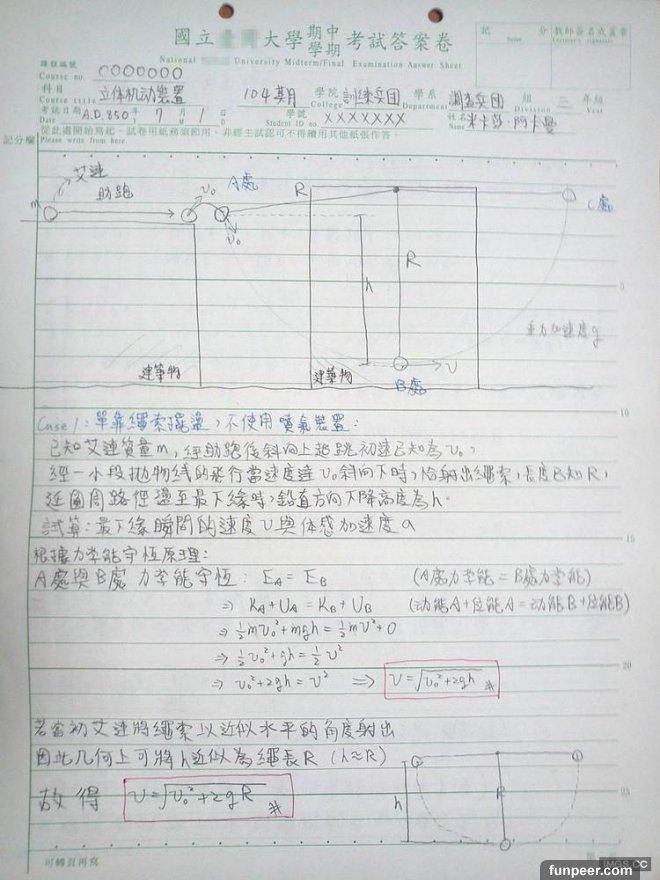 國立 大學 期中 學期 考試答案卷
National University Midterm/Final Examination Answer Sheet
記 分
Score
教師簽名或蓋章
課程編號
Course no. 0000000
科目
Course title 立体机动裝置
104期月
學院
College 訓練兵团
學系
Department 調查兵团
Division 三 年級
Year
考試日期
Date A.D.850年 7 月 1 日
學號
Student ID no. XXXXXXX
姓名
Name 米卡莎·阿卡曼
從此處開始寫起。試卷用紙務須節用。非經主試認可不得續用其他紙張作答。
Please write from here.
記分欄
艾連
m
助跑
v₀
A處
v₀
R
C處
R
h
5
重力加速度g
v
建築物
建築物
B處
10
Case 1: 單靠繩索擺盪,不使用噴氣裝置:
已知艾連質量m,經助跑後斜向上起跳初速已知為v₀,
經一小段拋物线的飛行當速度達v₀斜向下時,恰射出繩索,長度已知R,
延圓周路徑盪至最下緣時,鉛直方向下降高度為h.
試算:最下緣瞬間的速度v與体感加速度a
15
根據力学能守恆原理:
A處與B處力学能守恆: E_A = E_B (A處力学能=B處力学能)
⇒ K_A+U_A = K_B+U_B (动能A+位能A=动能B+位能B)
⇒ ½mv₀²+mgh=½mv²+0
⇒ ½v₀²+gh=½v²
20
⇒ v₀²+2gh=v² ⇒ v=√(v₀²+2gh) #
若當初艾連將繩索以近似水平的角度射出
因此几何上可將h近似為繩長R (h≈R)
故得 v=√(v₀²+2gR) #
h
R
25
可轉頁再寫
IMGS.CC
funpeer.com